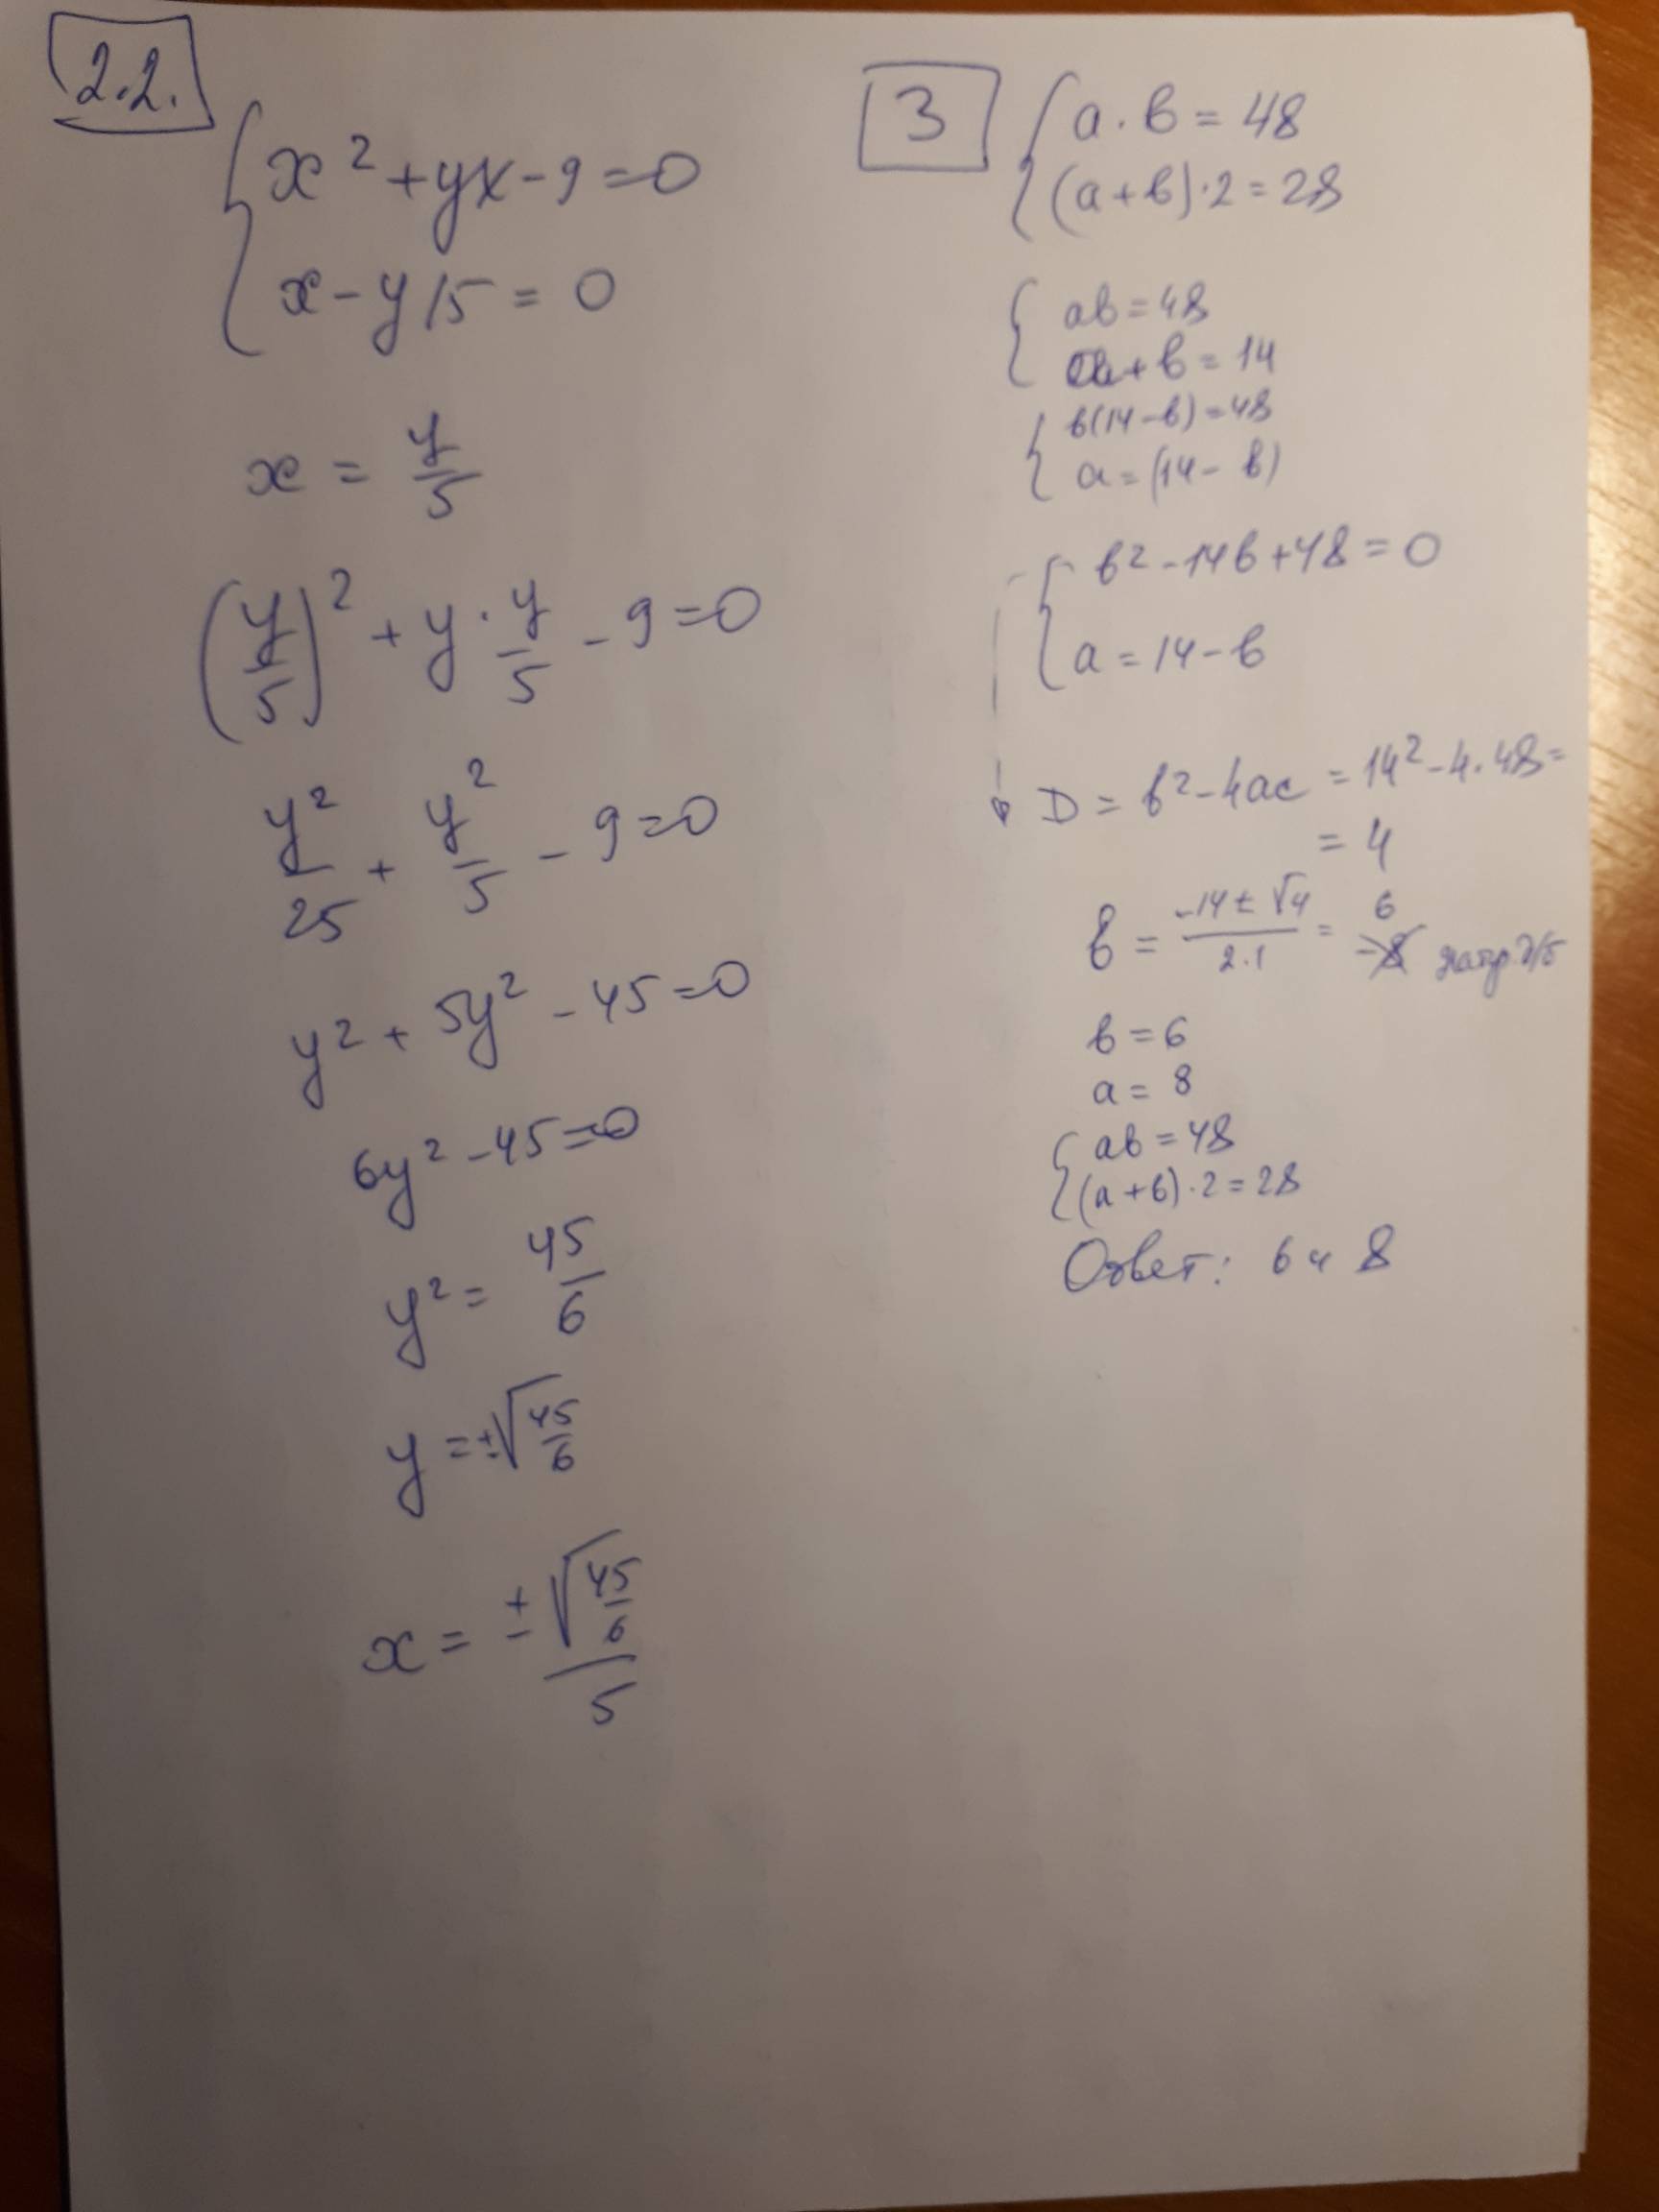 2.2.
x² + yx - 9 = 0
x - y/5 = 0
x = y/5
(y/5)² + y · y/5 - 9 = 0
y²/25 + y²/5 - 9 = 0
y² + 5y² - 45 = 0
6y² - 45 = 0
y² = 45/6
y = ±√(45/6)
x = ±√(45/6)/5
3
a · в = 48
(a + в) · 2 = 28
aв = 48
a + в = 14
в(14 - в) = 48
a = (14 - в)
в² - 14в + 48 = 0
a = 14 - в
D = в² - 4ac = 14² - 4 · 48 =
= 4
в = (-14 ± √4)/(2 · 1) = 6
-8
в = 6
a = 8
aв = 48
(a + в) · 2 = 28
Ответ: 6 и 8